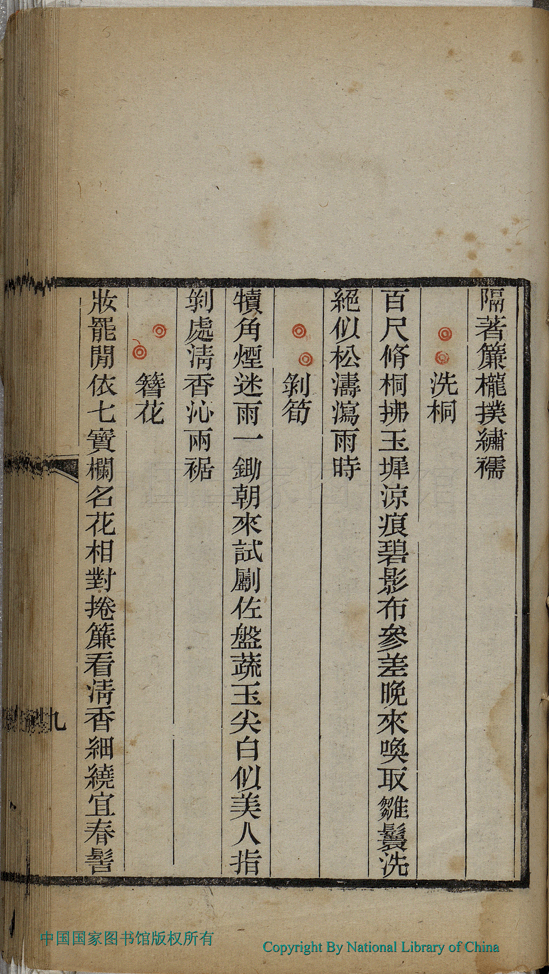 隔著簾櫳撲繡襦
洗桐
百尺脩桐拂玉墀涼痕碧影布參差晚來喚取雛鬟洗
絕似松濤瀉雨時
剝筍
犢角煙迷雨一鋤朝來試劚佐盤蔬玉尖白似美人指
剝處淸香沁兩裾
簪花
妝罷閒依七寶欄名花相對捲簾看淸香細繞宜春髻
九
中国国家图书馆版权所有
Copyright By National Library of China